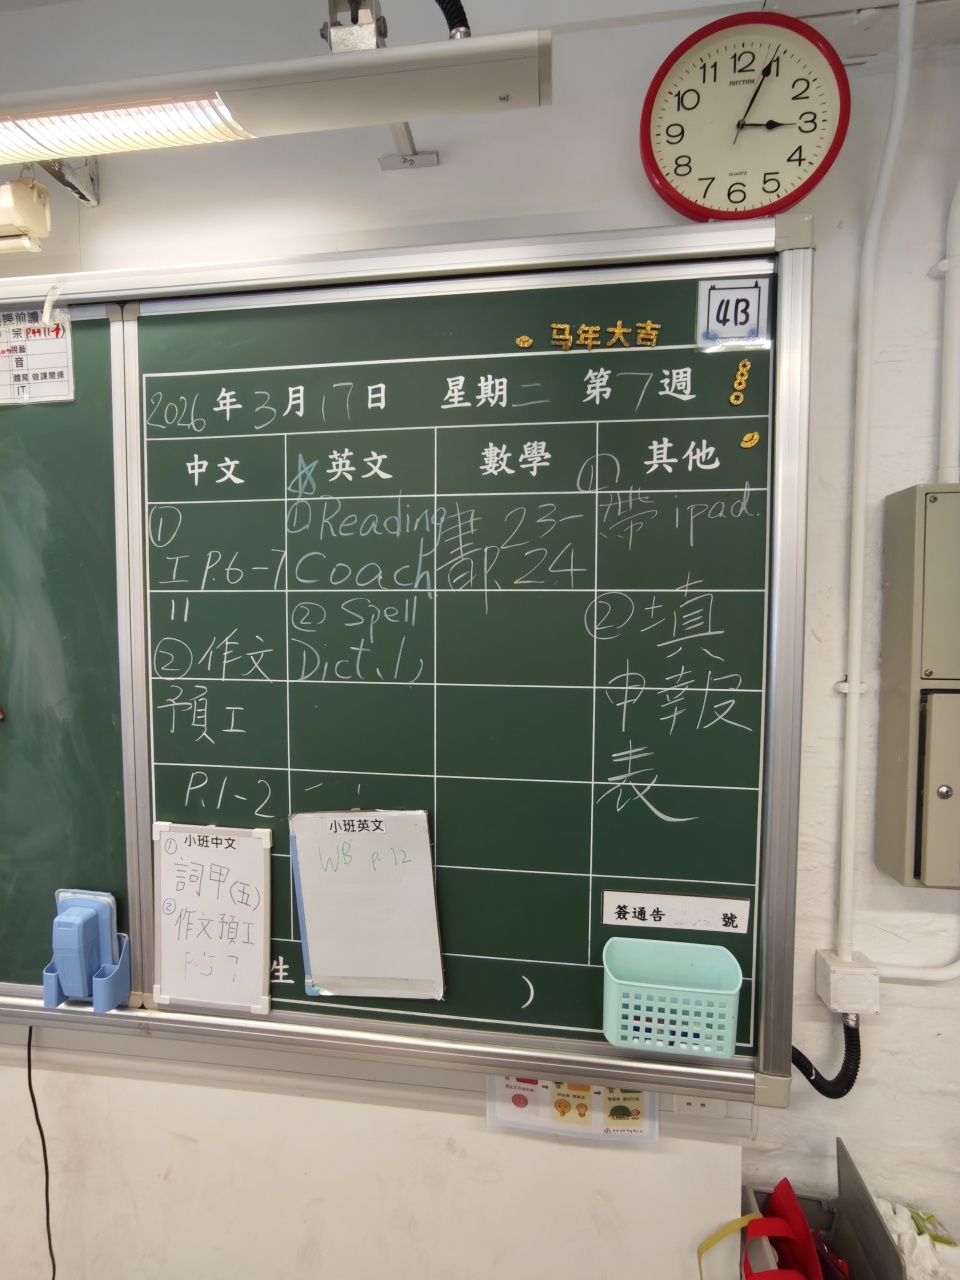 12
11
1
10
2
9
3
8
4
7
6
5
RHYTHM
QUARTZ
4B
马年大吉
課前讀
音
體育 做課間操
IT
2026年3月17日 星期二 第7週
中文
①
工 P.6-7
11
②作文
預工
P.1-2
☆英文
①Reading
Coach
② Spell
Dict.(1)
數學
書P.23-
24
其他
①
帶 ipad.
②填
申報
表
小班中文
①
詞甲(五)
②
作文預工
P.5-7
小班英文
WB p.12
簽通告 號
生
)